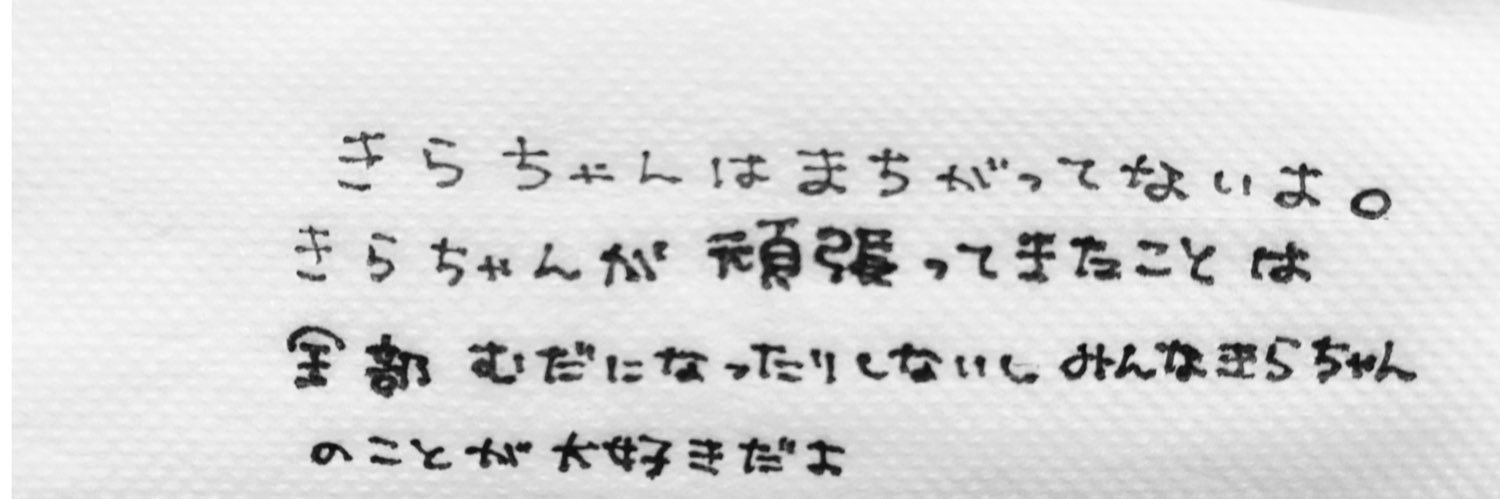 きらちゃんはまちがってないよ。
きらちゃんが頑張ってきたことは
全部むだになったりしないし みんなきらちゃん
のことが大好きだよ